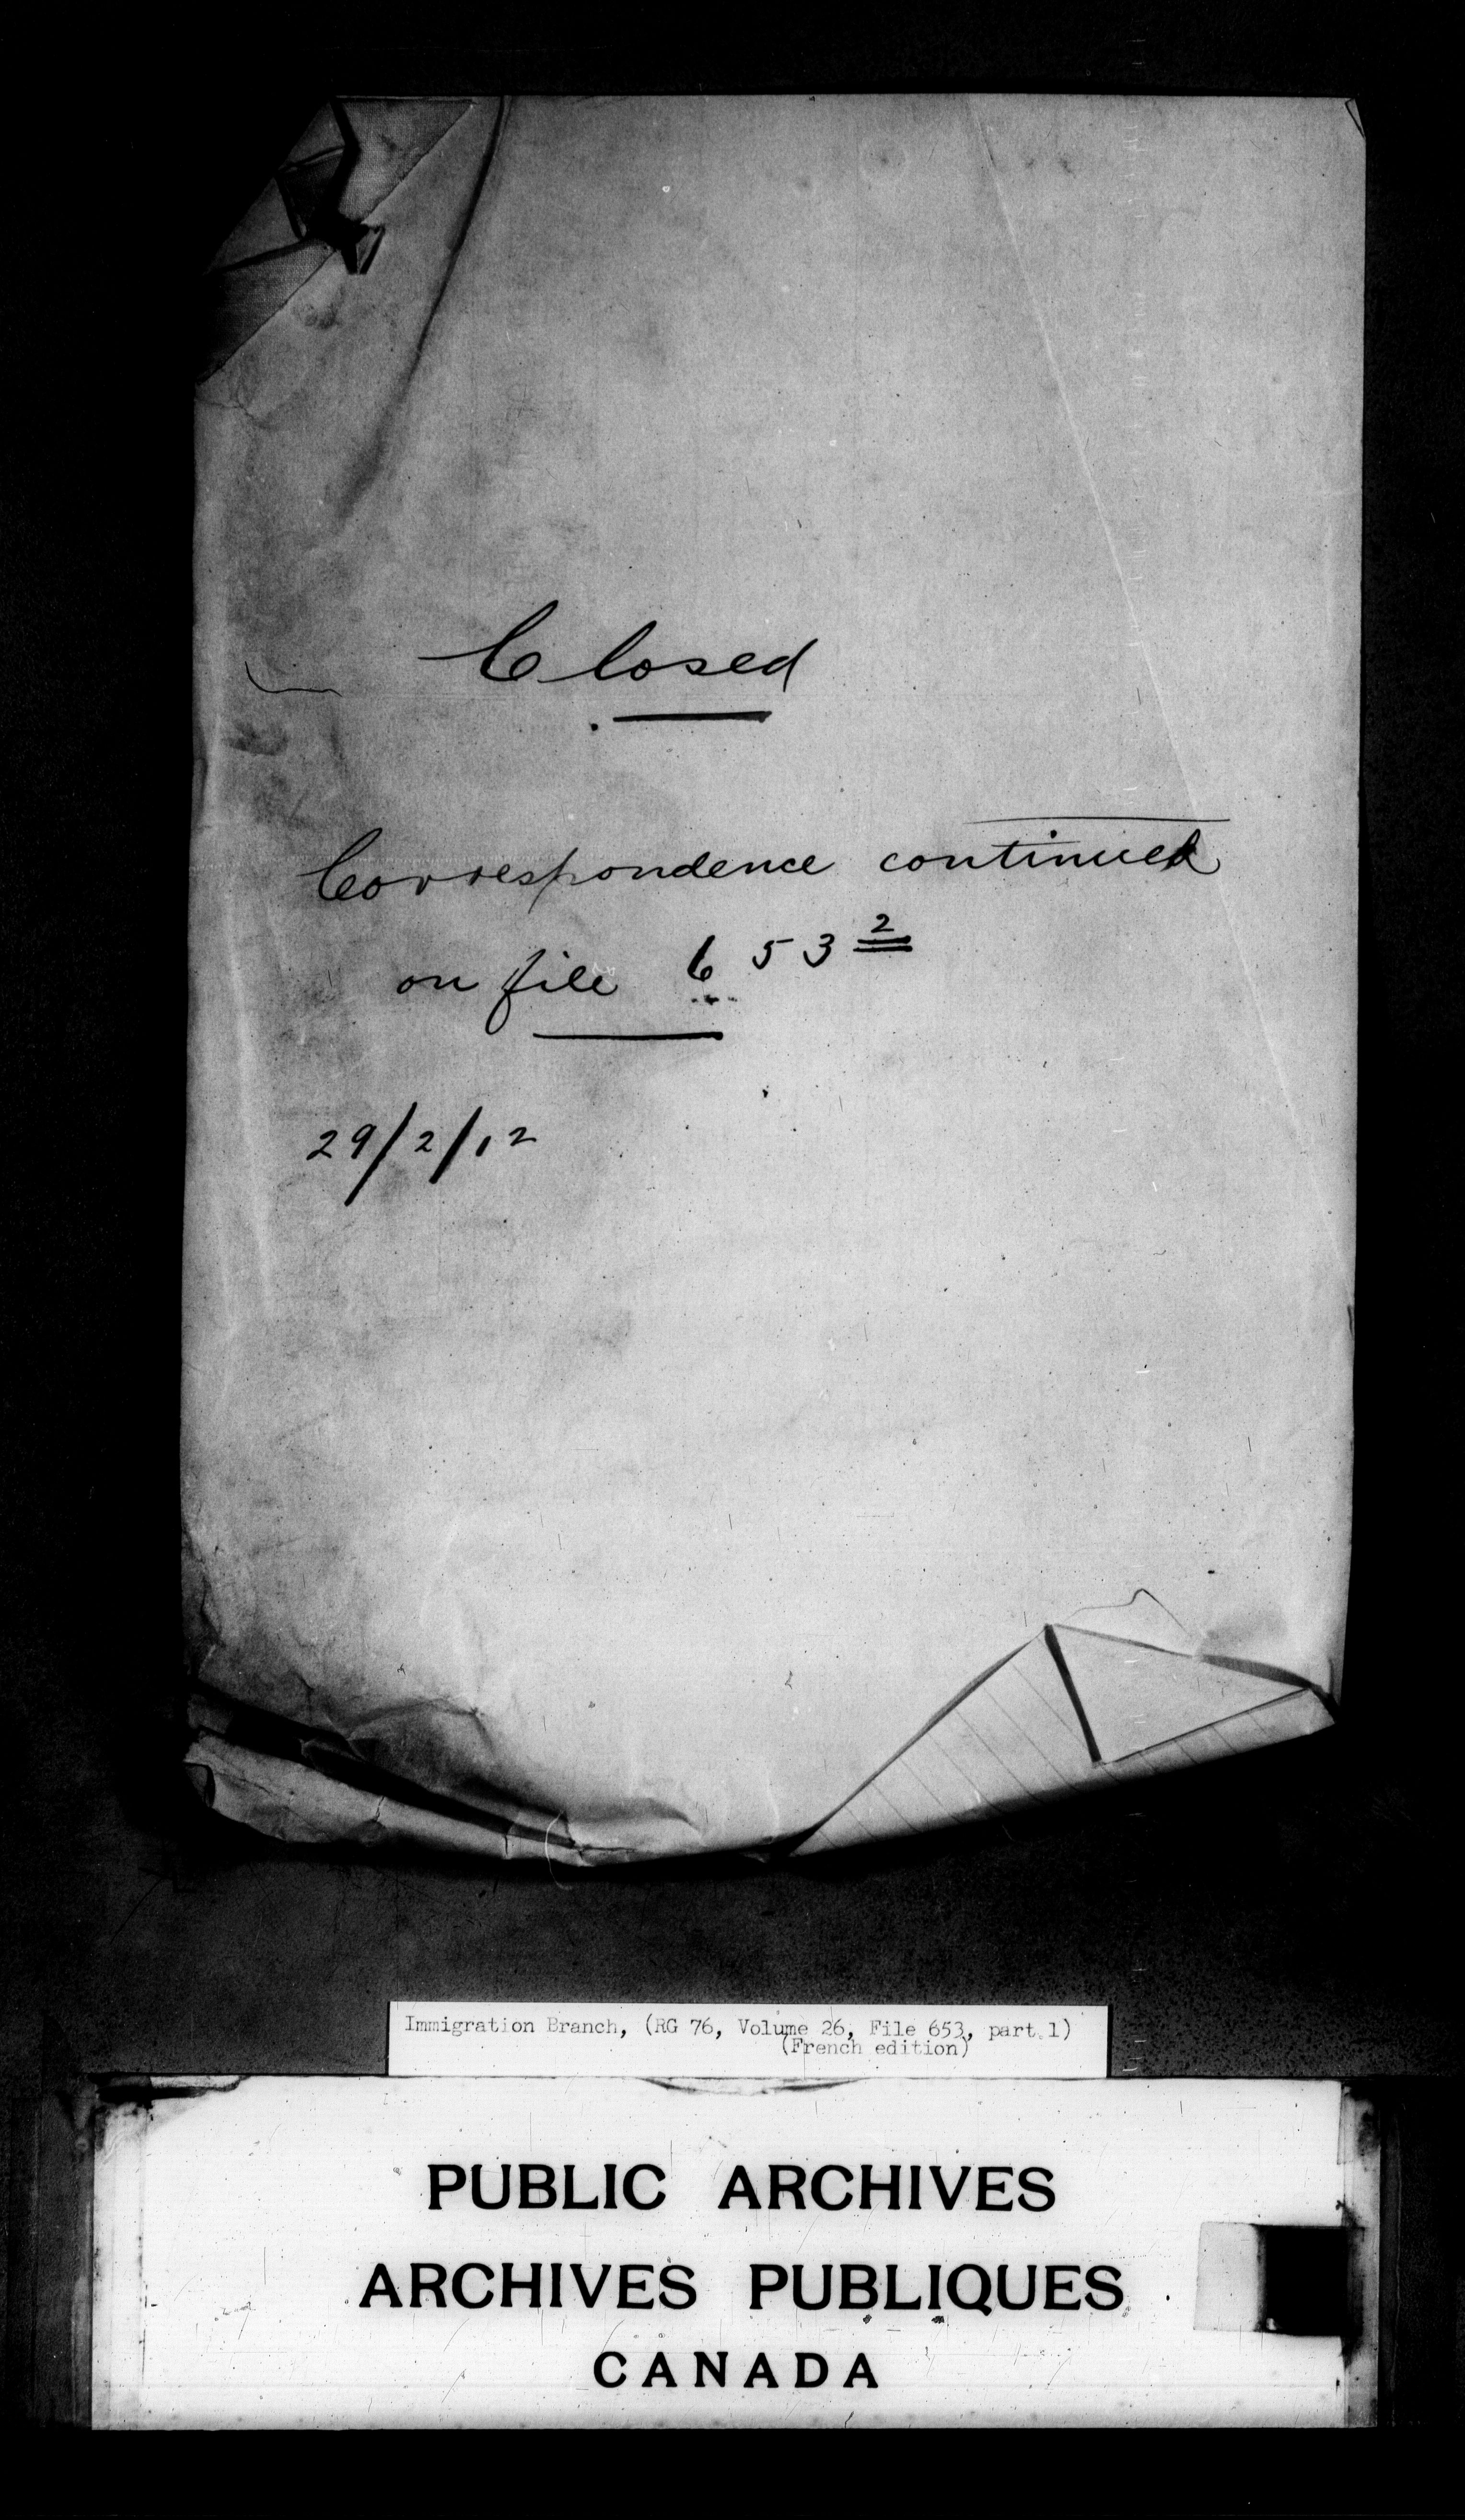 Closed
Correspondence continued
on file 653²
29/2/12
Immigration Branch, (RG 76, Volume 26, File 653, part 1)
(French edition)
PUBLIC ARCHIVES
ARCHIVES PUBLIQUES
CANADA